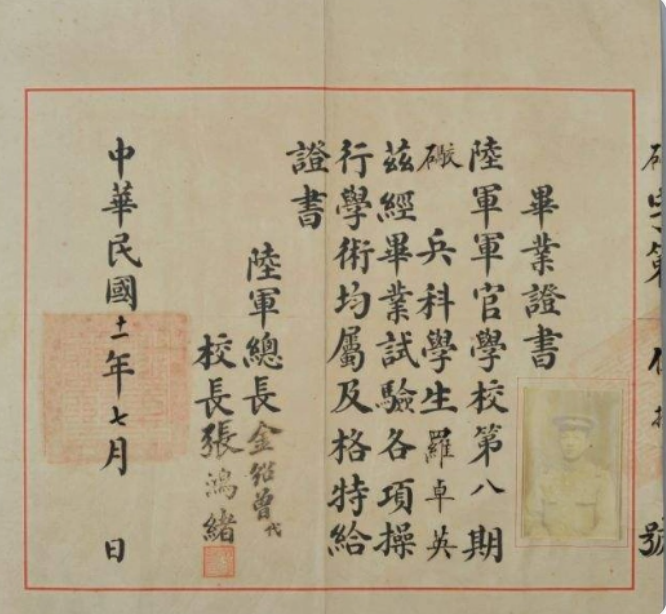 字第 號
畢業證書
陸軍軍官學校第八期
礮兵科學生羅卓英
茲經畢業試驗各項操
行學術均屬及格特給
證書
陸軍總長金紹曾代
校長張鴻緒
中華民國十一年七月 日